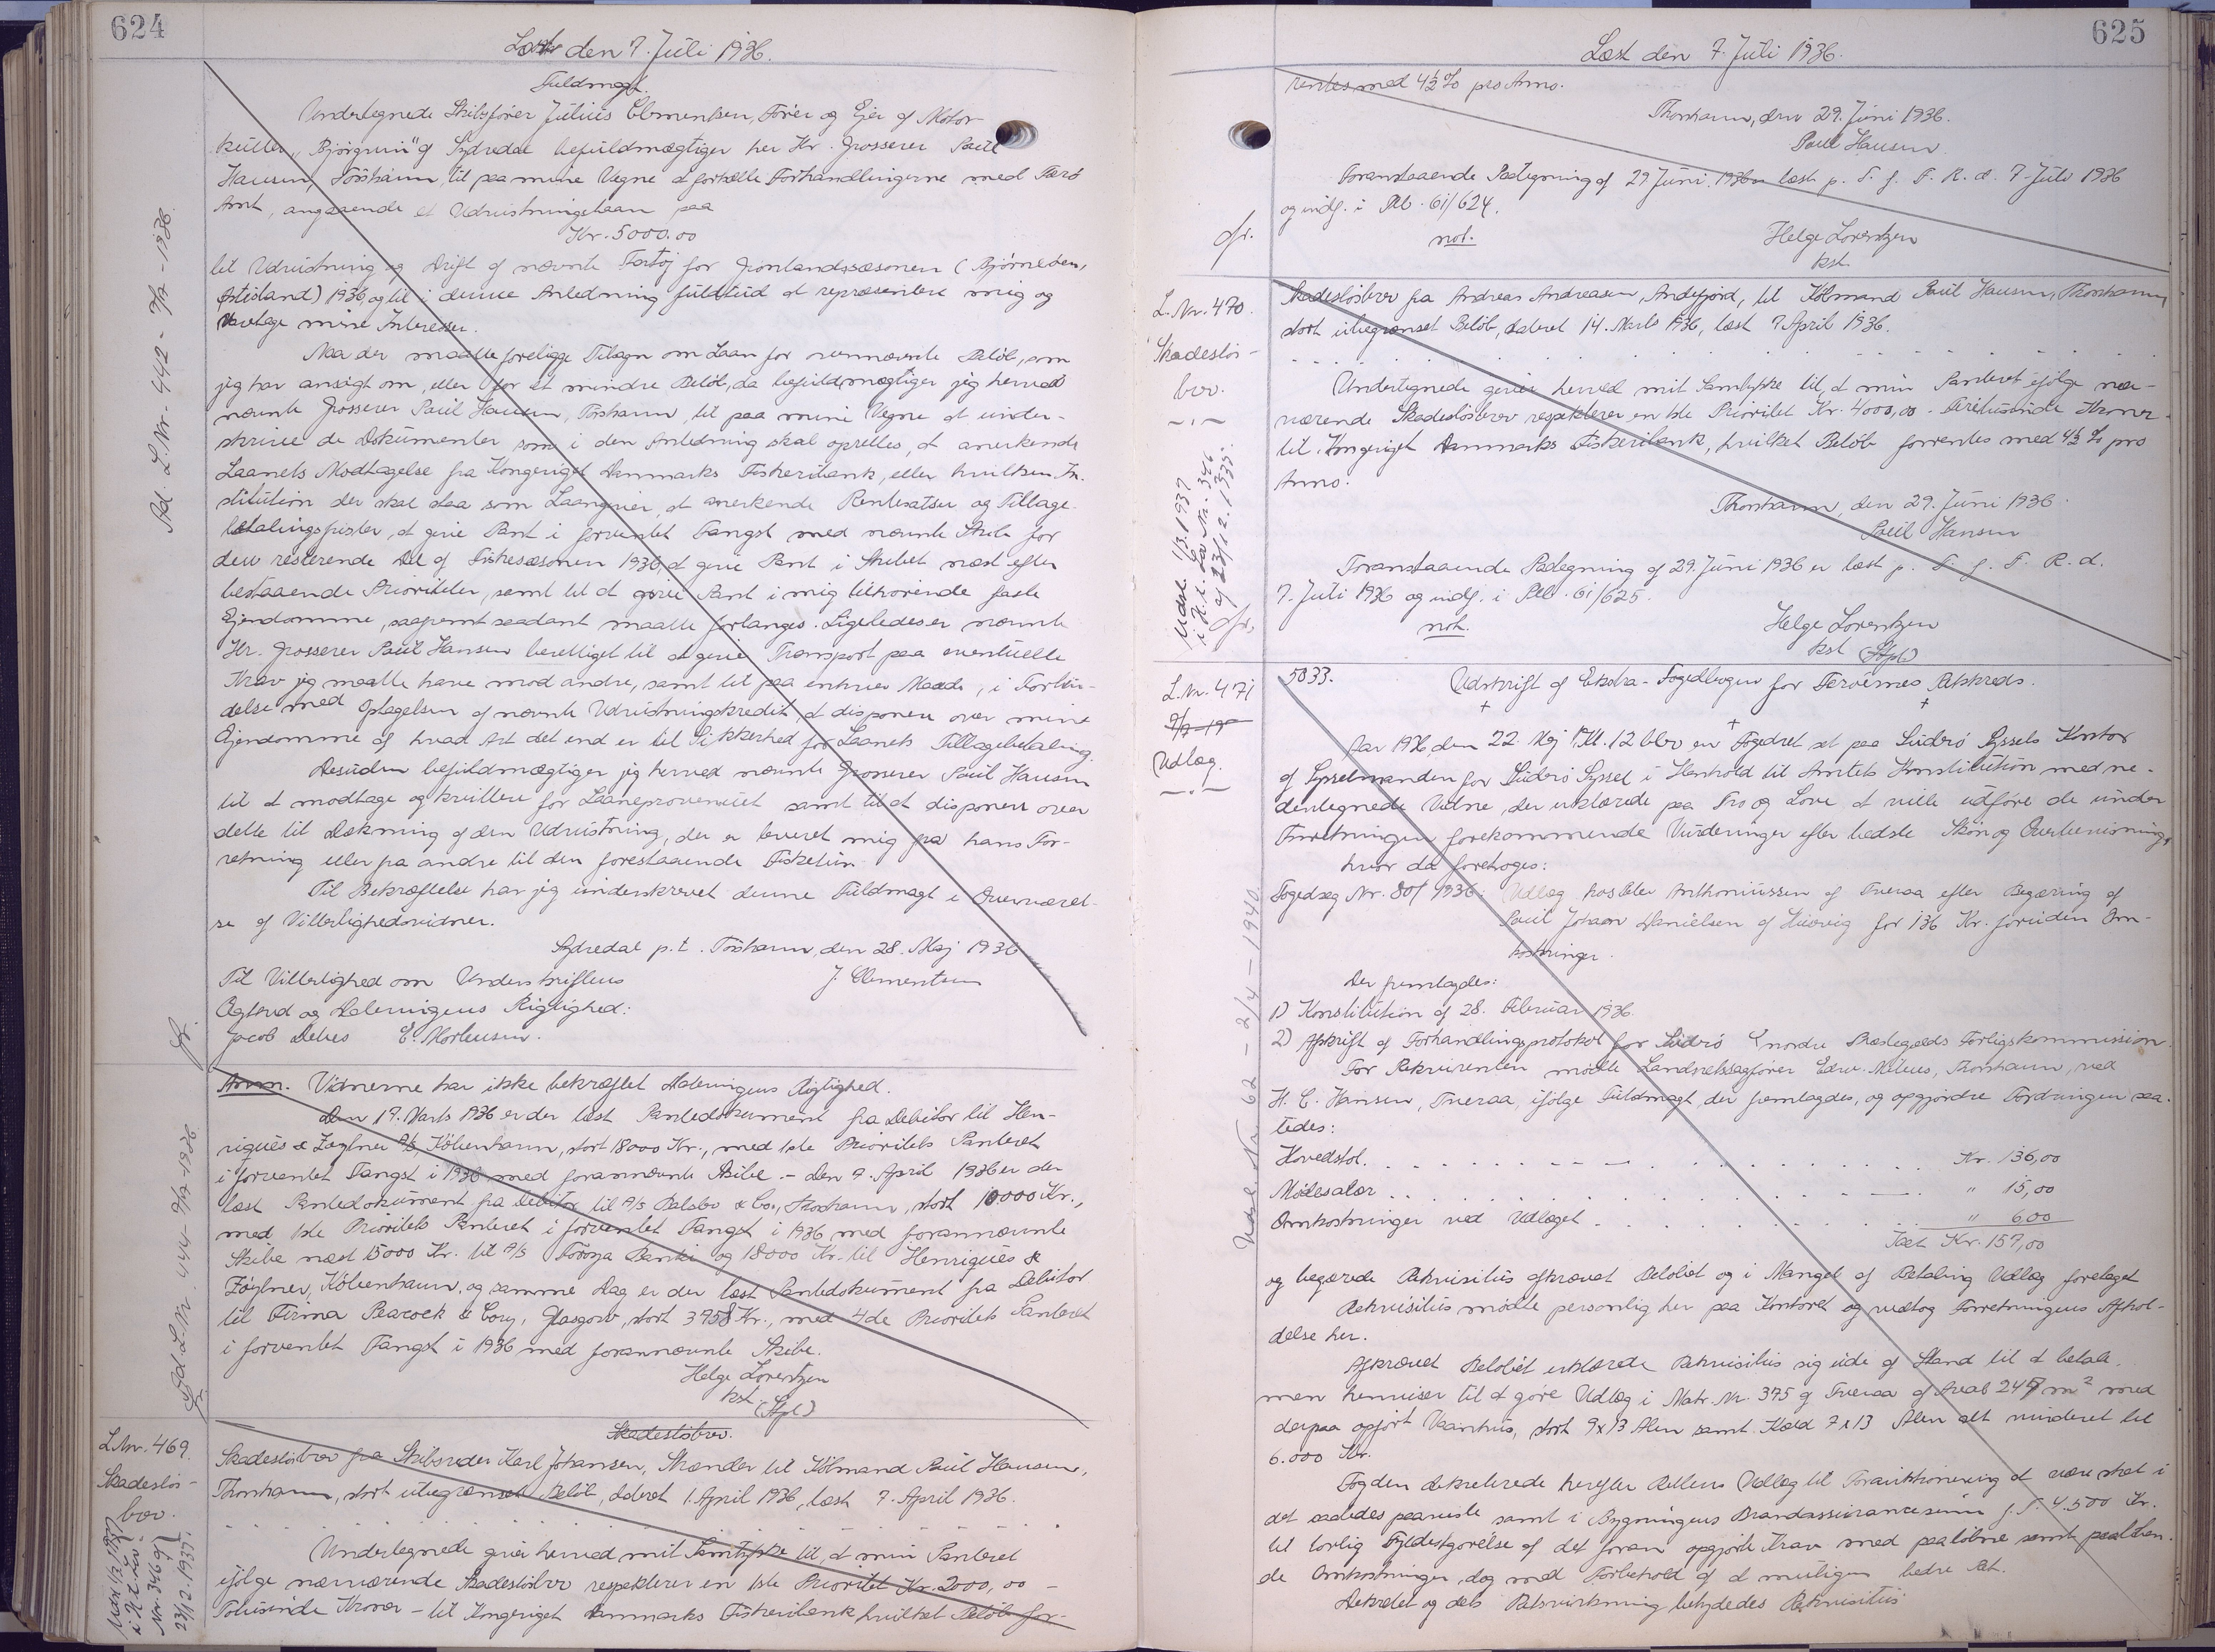 624
Læst den 7. Juli 1936.
Fuldmagt.
Undertegnede Skibsfører Julius Clementsen, Fører og Ejer af Motor-
kutter „Bjørgvin" af Sydredal befuldmægtiger her Hr. Grosserer Paul
Hansen, Tórshavn, til paa mine Vegne at fortælle Forhandlingerne med Færø
Amt, angaaende et Udrustningslaan paa
Kr. 5000.00
til Udrustning og Drift af nævnte Fartøj for Grønlandssæsonen (Bjørneøen,
Østisland) 1936, og til i denne Anledning fuldtud at repræsentere mig og
varetage mine Interesser.
Naar der maatte foreligge Tilsagn om Laan for ovennævnte Beløb, som
jeg har ansøgt om, eller for et mindre Beløb, da befuldmægtiger jeg herved
nævnte Grosserer Paul Hansen, Tórshavn, til paa mine Vegne at under-
skrive de Dokumenter som i den Anledning skal oprettes, at anerkende
Laanets Modtagelse fra Kongeriget Danmarks Fiskeribank, eller hvilken In-
stitution der skal staa som Laangiver, at anerkende Rentesatser og Tilbage-
betalingsfrister, at give Pant i forventet Fangst med nævnte Skib for
den resterende Del af Fiskesæsonen 1936, at give Pant i Skibet næst efter
bestaaende Prioriteter, samt til at give Pant i mig tilhørende faste
Ejendomme, saafremt saadant maatte forlanges. Ligeledes er nævnte
Hr. Grosserer Paul Hansen berettiget til at give Transport paa eventuelle
Krav jeg maatte have mod andre, samt til paa enhver Maade, i Forbin-
delse med Optagelsen af nævnte Udrustningskredit, at disponere over mine
Ejendomme af hvad Art det end er til Sikkerhed for Laanets Tilbagebetaling.
Desuden befuldmægtiger jeg herved nævnte Grosserer Paul Hansen
til at modtage og kvittere for Laaneprovenuet samt til at disponere over
dette til Dækning af den Udrustning, der er leveret mig fra hans For-
retning eller fra andre til den forestaaende Fisketur.
Til Bekræftelse har jeg underskrevet denne Fuldmagt i Overværel-
se af Vitterlighedsvidner.
Sydredal p.t. Tórshavn, den 28. Maj 1936
Til Vitterlighed om Underskriftens J. Clementsen
Ægthed og Dateringens Rigtighed:
Jacob Debes E. Mortensen.
Ad. L. Nr. 442 - 7/7 - 1936.
Anm. Vidnerne har ikke bekræftet Dateringens Rigtighed.
Den 17. Marts 1936 er der læst Pantedokument fra Debitor til Hen-
riques & Zøylner A/S, København, stort 18000 Kr., med 1ste Prioritets Panteret
i forventet Fangst i 1936 med forannævnte Skibe. - Den 7. April 1936 er der
læst Pantedokument fra Debitor til A/S Balsbo & Co., Thorshavn, stort 10.000 Kr.,
med 1ste Prioritets Panteret i forventet Fangst i 1936, med forannævnte
Skibe næst 15000 Kr. til A/S Føroya Banki og 18000 Kr. til Henriques &
Zøylner, København, og samme Dag er der læst Pantedokument fra Debitor
til Firma Peacock & Cory, Glasgow, stort 3758 Kr., med 4de Prioritets Panteret
i forventet Fangst i 1936 med forannævnte Skibe.
Helge Lorentzen
kst.
(Stpl)
Ad L. Nr. 444 - 7/7 - 1936.
L. Nr. 469.
Skadesløs-
brev.
Skadesløsbrev.
Skadesløsbrev fra Skibsreder Karl Johansen, Strænder til Købmand Paul Hansen,
Thorshavn, stort ubegrænset Beløb, dateret 1. April 1936, læst 7. April 1936.
Undertegnede giver herved mit Samtykke til, at min Panteret
ifølge nærværende Skadesløsbrev respekterer en 1ste Prioritet Kr. 2000,00 -
Totusinde Kroner - til Kongeriget Danmarks Fiskeribank, hvilket Beløb for-
625
Læst den 7. Juli 1936.
rentes med 4½ % pro Anno.
Thorshavn, den 29. Juni 1936.
Paul Hansen
Foranstaaende Paategning af 29 Juni 1936 er læst p. T. f. F. R. d. 7. Juli 1936
og indf. i Pb. 61/624.
not. Helge Lorentzen
kst.
L. Nr. 470.
Skadesløs-
brev.
Skadesløsbrev fra Andreas Andreasen, Andefjord, til Købmand Paul Hansen, Thorshavn,
stort ubegrænset Beløb, dateret 14. Marts 1936, læst 7 April 1936.
Undertegnede giver herved mit Samtykke til, at min Panteret ifølge nær-
værende Skadesløsbrev respekterer en 1ste Prioritet Kr. 4000,00 - Firetusinde Kroner -
til Kongeriget Danmarks Fiskeribank, hvilket Beløb forrentes med 4½ % pro
Anno.
Thorshavn, den 29. Juni 1936.
Paul Hansen
Foranstaaende Paategning af 29. Juni 1936 er læst p. T. f. F. R. d.
7. Juli 1936 og indf. i Pb. 61/625.
not. Helge Lorentzen
kst. (Stpl)
Udsl. 1/3 1937
L. Nr. 471
Udlæg.
5033. Udskrift af Ekstra-Fogedbogen for Færøernes Retskreds.
Aar 1936, den 22. Maj Kl. 12 blev en Fogedret sat paa Suderø Syssels Kontor
af Sysselmanden for Suderø Syssel i Henhold til Amtets Konstitution med ne-
dentegnede Vidne, der erklærede paa Tro og Love at ville udføre de under
Forretningen forekommende Vurderinger efter bedste Skøn og Overbevisning,
hvor da foretoges:
Fogedsag Nr. 80/1936: Udlæg hos Peter Anthoniussen af Tveraa efter Begæring af
Paul Johan Danielsen af Hvævig for 136 Kr. foruden Om-
kostninger.
Der fremlagdes:
1) Konstitution af 28. Februar 1936.
2) Afskrift af Forhandlingsprotokol for Suderø nordre Præstegælds Forligskommission.
For Rekvirenten mødte Landsretssagfører Edw. Mitens, Thorshavn, ved
H. C. Hansen, Tveraa, ifølge Fuldmagt, der fremlagdes, og opgjorde Fordringen saa-
ledes:
Hovedstol. . . . . Kr. 136,00
Mødesalær . . . . . " 15,00
Omkostninger ved Udlæget . . . . . " 6,00
Ialt Kr. 157,00
og begærede Rekvisitus afkrævet Beløbet og i Mangel af Betaling Udlæg foretaget
Rekvisitus mødte personlig her paa Kontoret og vedtog Forretningens Afhol-
delse her.
Afkrævet Beløbet erklærede Rekvisitus sig ude af Stand til at betale,
men henviser til at gøre Udlæg i Matr. Nr. 375 af Tveraa af Areal 247 m² med
derpaa opført Vaanhus, stort 9x13 Alen samt Kæld 7x13 Alen alt vurderet til
6.000 Kr.
Fogden dekreterede herefter Rettens Udlæg til Forauktionering at være sket i
det saaledes paaviste samt i Bygningens Brandassurancesum p. T. 4.500 Kr.
til lovlig Fyldestgørelse af det foran opgjorte Krav med paaløbne samt paaløben-
de Omkostninger, dog med Forbehold af at muligen bedre Ret.
Dekretet og dets Retsvirkning betydedes Rekvisitus
Udsl. Nr. 62 - 2/4 - 1940.